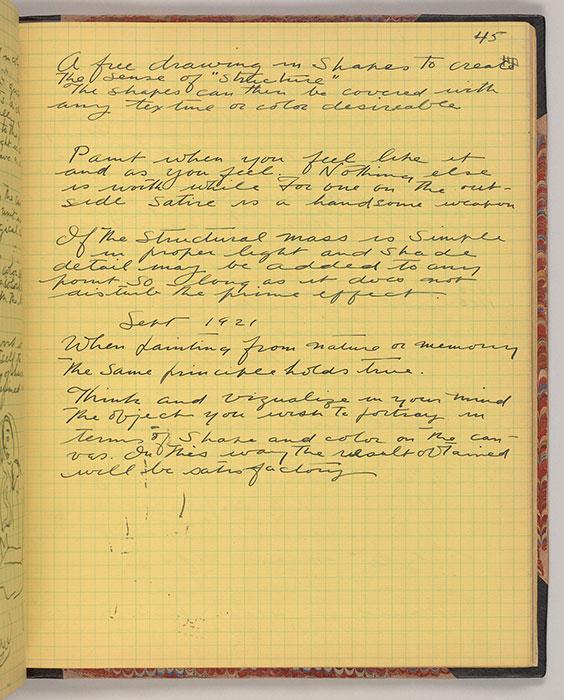 45
A free drawing in shapes to create
the sense of "structure"
The shapes can then be covered with
any texture or color desireable
Paint when you feel like it
and as you feel. Nothing else
is worth while For one on the out-
side Satire is a handsome weapon
If the structural mass is simple
in proper light and shade
detail may be added to any
point so long as it does not
disturb the prime effect.
Sept 1921
When painting from nature or memory
the same principle holds true.
Think and vizualize in your mind
the object you wish to portray in
terms of shape and color on the can-
vas. In this way the result obtained
will be satisfactory